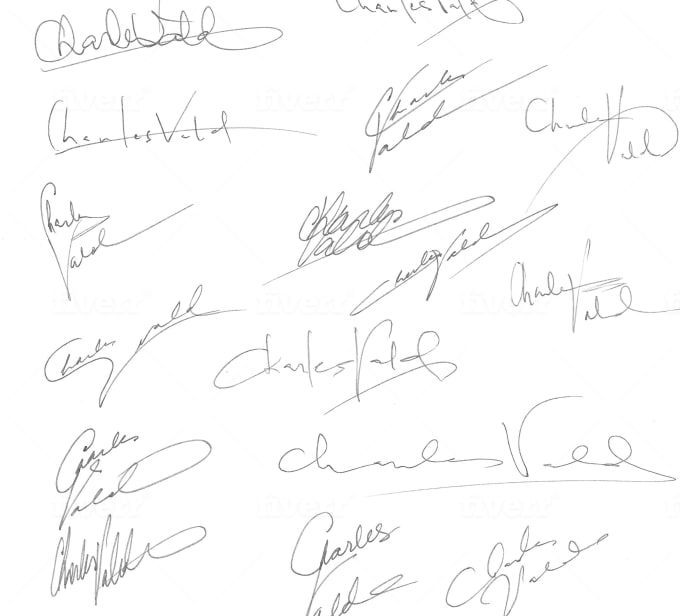 Charles Vald
Charles Vald
Charles Vald
Charles
Vald
Charles
Vald
Charles
Vald
Charles
Vald
Charles Vald
Charles
Vald
Charles Vald
Charles Vald
Charles
Vald
Charles Vald
Charles Vald
Charles
Vald
Charles
Vald
fiverr
fiverr
fiverr
fiverr
fiverr
fiverr
fiverr
fiverr
fiverr